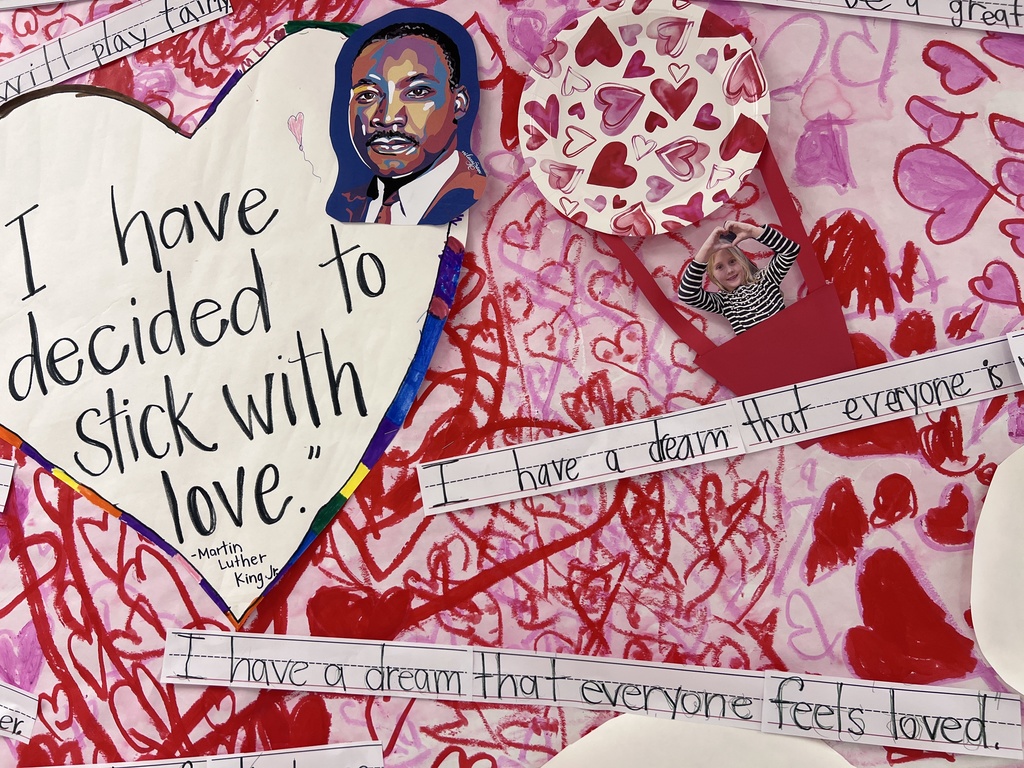 will play fair
be a great
MLK
I have
decided to
stick with
love."
-Martin
Luther
King Jr.
I have a dream that everyone is
I have a dream that everyone feels loved."
er.